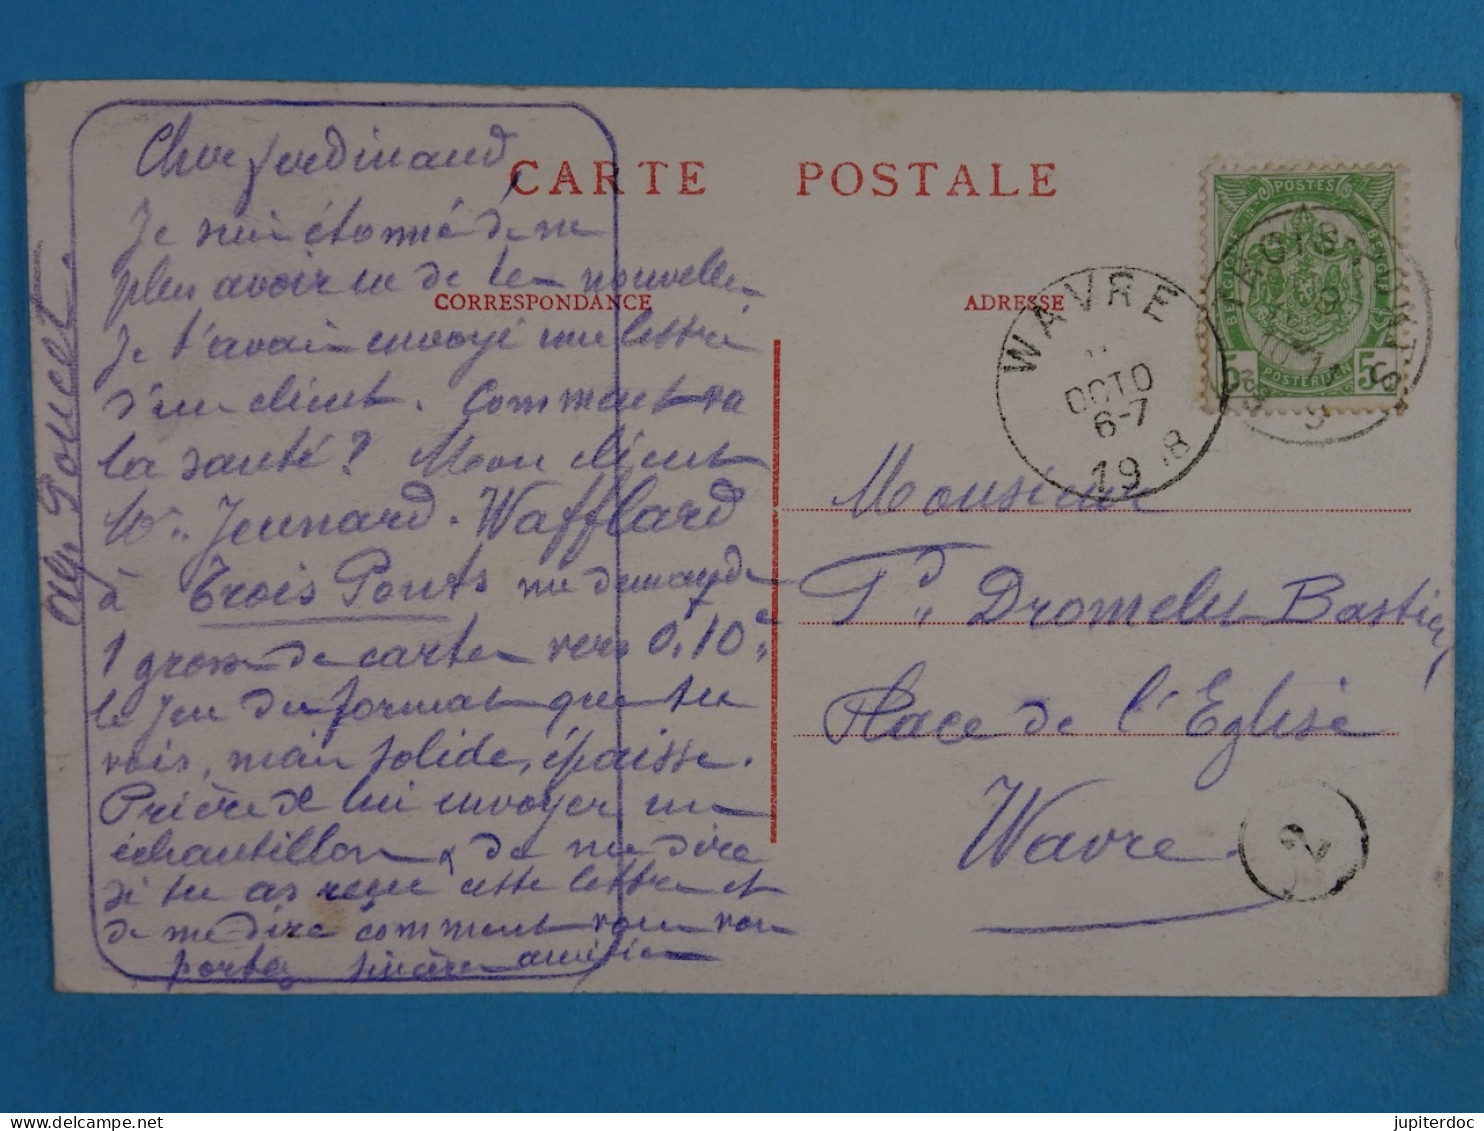 CARTE POSTALE
CORRESPONDANCE
ADRESSE
Cher ferdinand,
Je suis étonné de ne
plus avoir eu de tes nouvelles
Je t'avais envoyé une lettre
d'un client. Comment va
la santé? Mon client
Mr. Jeunard-Wafflard
à Trois Ponts me demande
1 grosse de cartes vers 0,10c
le jeu du format que tu
vois, mais solide, épaisse.
Prière de lui envoyer un
échantillon & de me dire
si tu as reçu cette lettre et
de me dire comment vous vous
portez sincères amitiés
Monsieur
Fd. Bastien
Place de l'Eglise
Wavre
WAVRE
OCTO
6-7
19 8
POSTES
POSTERIJEN
5c 5c
2